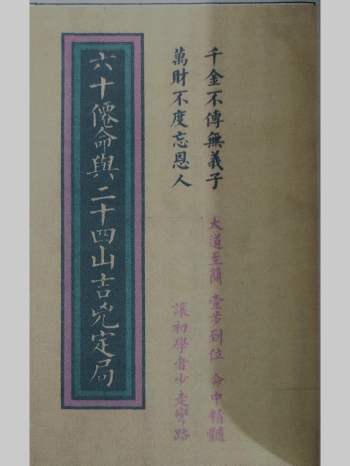 千金不傳無義子
萬財不度忘恩人
大道至簡 壹步到位 命中精髓
讓初學者少走彎路
六十僊命與二十四山吉兇定局